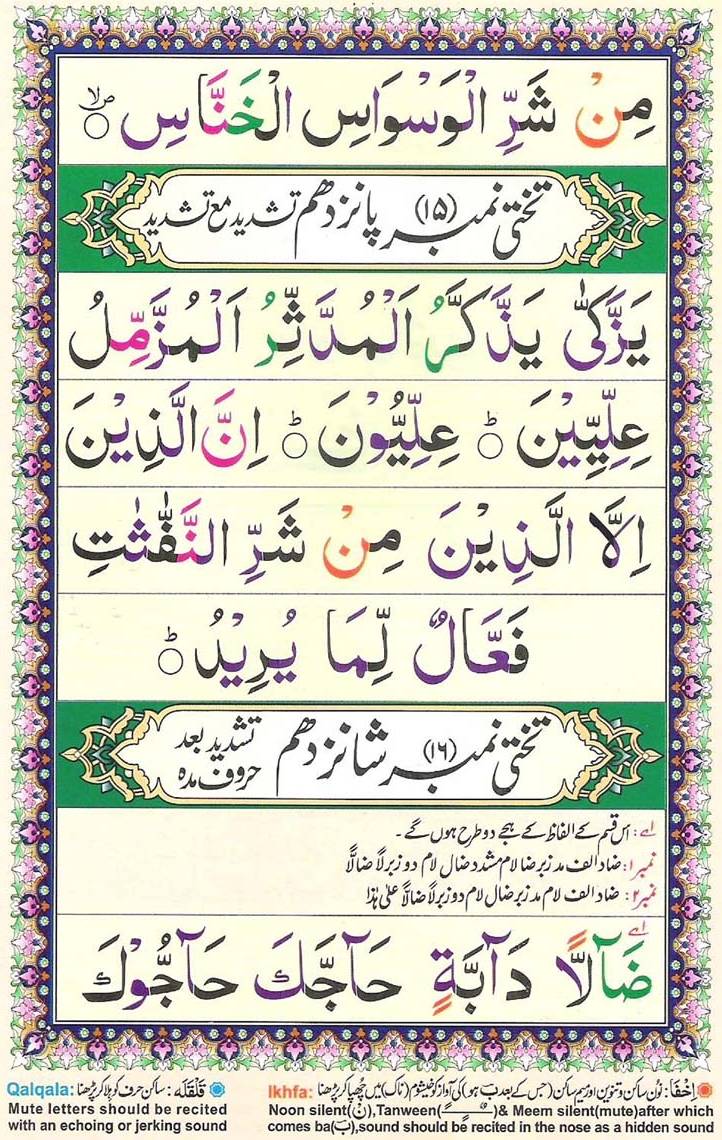 مِنْ شَرِّ الْوَسْوَاسِ الْخَنَّاسِ
تختی نمبر (۱۵) پانزدھم تشدید مع تشدید
يَزَّكّٰى يَذَّكَّرُ اَلْمُدَّثِّرُ اَلْمُزَّمِّلُ
عِلِّيِّيْنَ ؕ عِلِّيُّوْنَ ؕ اِنَّ الَّذِيْنَ
اِلَّا الَّذِيْنَ مِنْ شَرِّ النَّفّٰثٰتِ
فَعَّالٌ لِّمَا يُرِيْدُ ؕ
تختی نمبر (۱۶) شانزدھم تشدید بعد حروف مدہ
اے: اس قسم کے الفاظ کے ہجے دو طرح ہوں گے۔
نمبر۱: ضاد الف مد زبر ضا لام مشدد ضال لام دو زبر لاً ضالاًّ
نمبر۲: ضاد الف لام مد زبر ضال لام دو زبر لاً ضالاًّ علیٰ ہٰذا
ضَآلًّا دَآبَّةٍ حَآجَّكَ حَآجُّوْكَ
اِخفَا: نون ساکن و تنوین اور میم ساکن (جس کے بعد ب ہو) کی آواز کو خیشوم (ناک) میں چھپا کر پڑھنا Ikhfa:
Noon silent(نْ),Tanween(ـًـٍـٌ)& Meem silent(mute)after which
comes ba(ب),sound should be recited in the nose as a hidden sound
قَلْقَلَہ: ساکن حرف کو ہلا کر پڑھنا Qalqala:
Mute letters should be recited
with an echoing or jerking sound